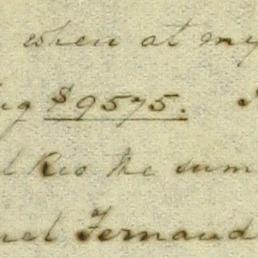 when at my
$9575.
Rco the sum
Fernand